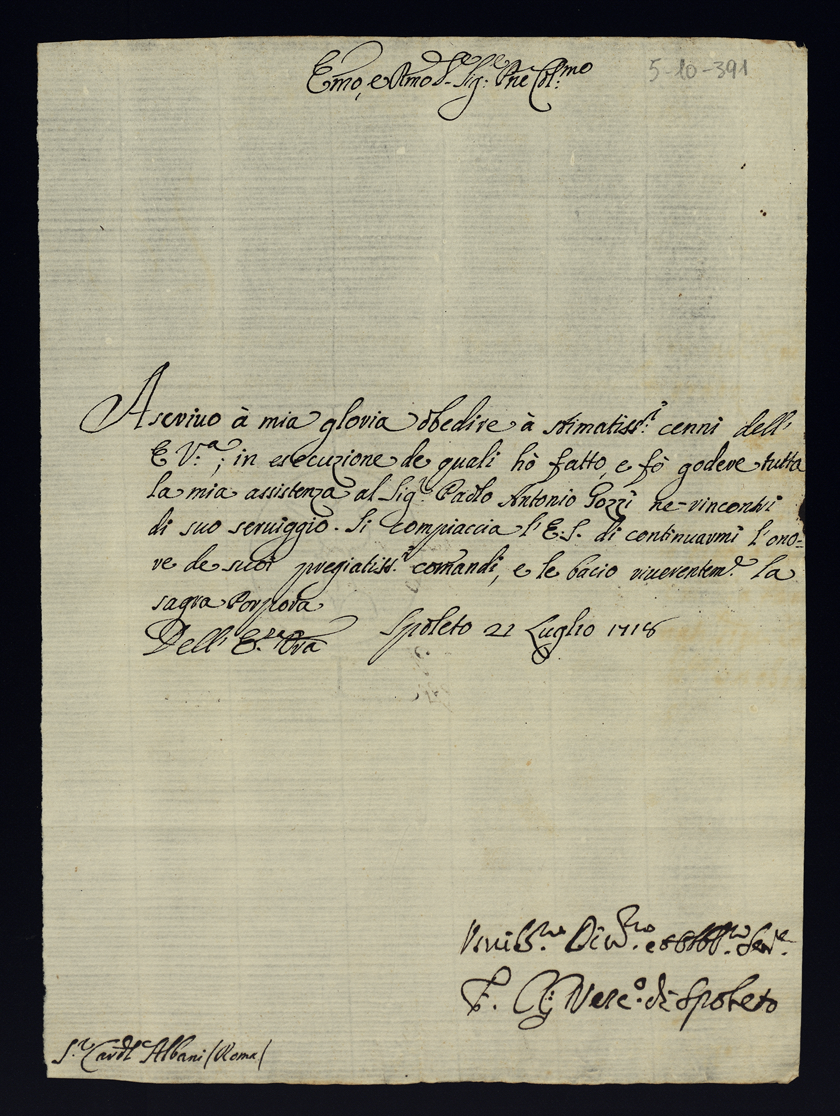 Emo, e Rmo Sig.re Pne Col.mo
5-10-391
Ascriuo à mia gloria obedire à stimatiss.i cenni dell'
E V.a; in esecuzione de quali hò fatto, e fò godere tutta
la mia assistenza al Sig.r Paolo Antonio Pozzi ne rincontri
di suo seruiggio. Si compiaccia l'E.S. di continuarmi l'ono=
re de suoi pregiatiss.i comandi, e le bacio riuerentem.e la
sagra Porpora
Dell' E.za Vra Spoleto 22 Luglio 1718
Vmiliss.mo Diu.mo e Obblig.mo Ser.e
Vesc.o di Spoleto
S.r Card.l Albani (Roma)